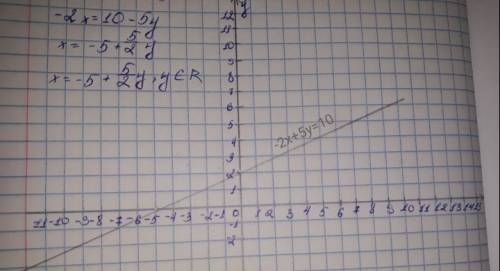 -2x=10-5y
x=-5+5/2 y
x=-5+5/2 y, y∈R
y
12
11
10
9
8
7
6
5
4
3
2
1
-2x+5y=10
-11 -10 -9 -8 -7 -6 -5 -4 -3 -2 -1 0 1 2 3 4 5 6 7 8 9 10 11 12 13 14 15
-1
-2